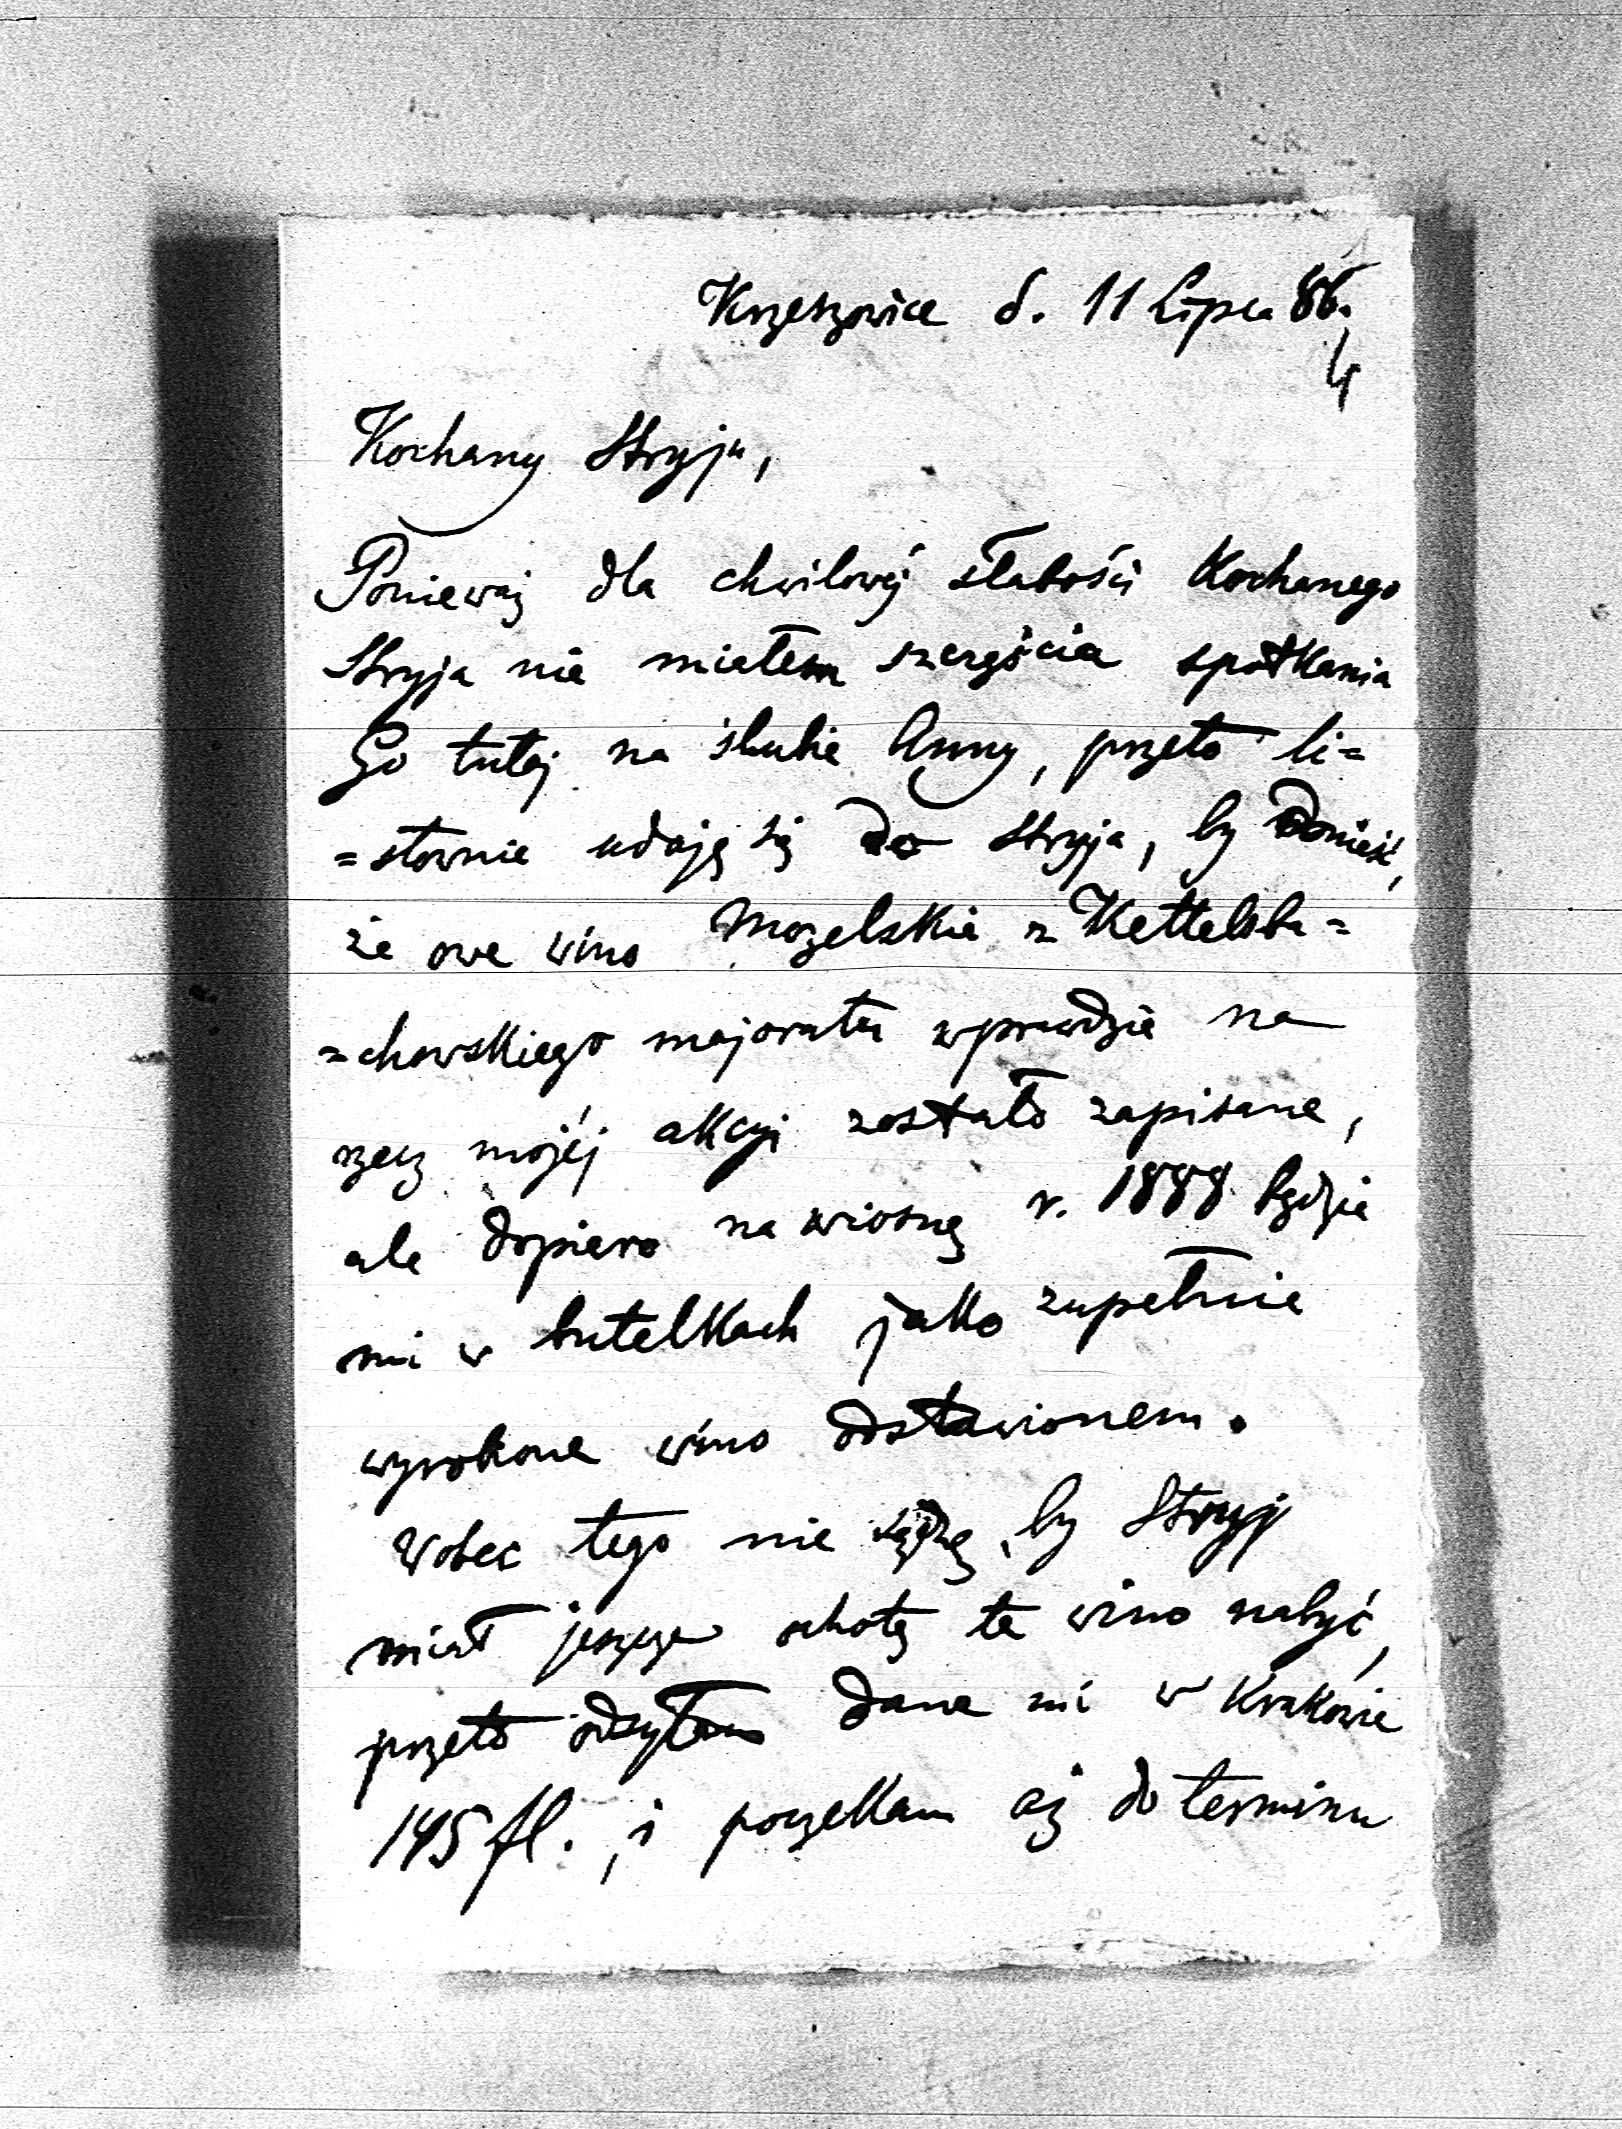 Krzeszowice d. 11 Lipca 86.
4
Kochany Stryju,
Ponieważ dla chwilowéj słabości Kochanego
Stryja nie miałem szczęścia spotkania
Go tutaj na ślubie Anny, przeto li=
=stownie udaję się do Stryja, by donieść,
że owe wino Mozelskie z Kettelsba=
=chowskiego majoratu wprawdzie na
rzecz mojéj akcyi zostało zapisane,
ale dopiero na wiosnę r. 1888 będzie
mi w butelkach jako zupełnie
wyrobione wino odstawionem.
Wobec tego nie sądzę, by Stryj
miał jeszcze ochotę te wino nabyć,
przeto odsyłam dane mi w Krakowie
145 fl., i poczekam aż do terminu